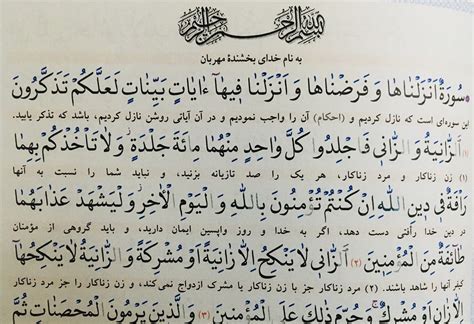 بِسْمِ اللهِ الرَّحْمنِ الرَّحيمِ
به نام خدای بخشندهٔ مهربان
سُورَةٌ اَنْزَلْناها وَ فَرَضْناها وَ اَنْزَلْنا فيهآ ءاياتٍ بَيِّناتٍ لَعَلَّكُمْ تَذَكَّرُونَ
این سوره‌ای است که نازل کردیم و (احکام) آن را واجب نمودیم و در آن آیاتی روشن نازل کردیم، باشد که تذکر یابید.
(۱) اَلزّانِيَةُ وَ الزّانى فَاجْلِدُوا كُلَّ واحِدٍ مِنْهُما مِائَةَ جَلْدَةٍ وَ لا تَأْخُذْكُمْ بِهِما
(۱) زن زناکار و مرد زناکار، هر یک را صد تازیانه بزنید، و نباید شما را نسبت به آنها
رَأْفَةٌ فى دينِ اللهِ اِنْ كُنْتُمْ تُؤْمِنُونَ بِاللهِ وَ الْيَوْمِ الْاخِرِ وَ لْيَشْهَدْ عَذابَهُما
در دین خدا رأفتی دست دهد، اگر به خدا و روز واپسین ایمان دارید، و باید گروهی از مؤمنان
طآئِفَةٌ مِنَ الْمُؤْمِنينَ (۲) اَلزّانى لا يَنْكِحُ اِلّا زانِيَةً اَوْ مُشْرِكَةً وَ الزّانِيَةُ لا يَنْكِحُهآ
کیفر آنها را شاهد باشند. (۲) مرد زناکار جز با زن زناکار یا مشرک ازدواج نمی‌کند، و زن زناکار را جز مرد زناکار
اِلّا زانٍ اَوْ مُشْرِكٌ وَ حُرِّمَ ذلِكَ عَلَى الْمُؤْمِنينَ (۳) وَ الَّذينَ يَرْمُونَ الْمُحْصَناتِ ثُمَّ